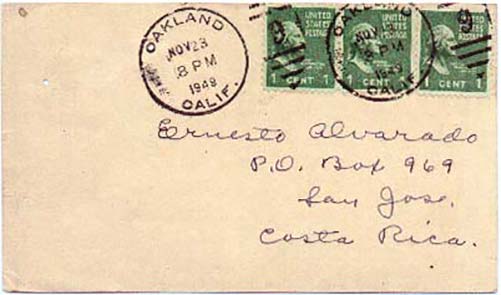 OAKLAND
NOV 23
8 PM
1949
CALIF.
UNITED STATES POSTAGE
1 CENT 1
OAKLAND
NOV
8 PM
1949
CALIF.
UNITED STATES POSTAGE
1 CENT 1
STATES POSTAGE
1 CENT 1
Ernesto Alvarado
P.O. Box 969
San Jose.
Costa Rica.